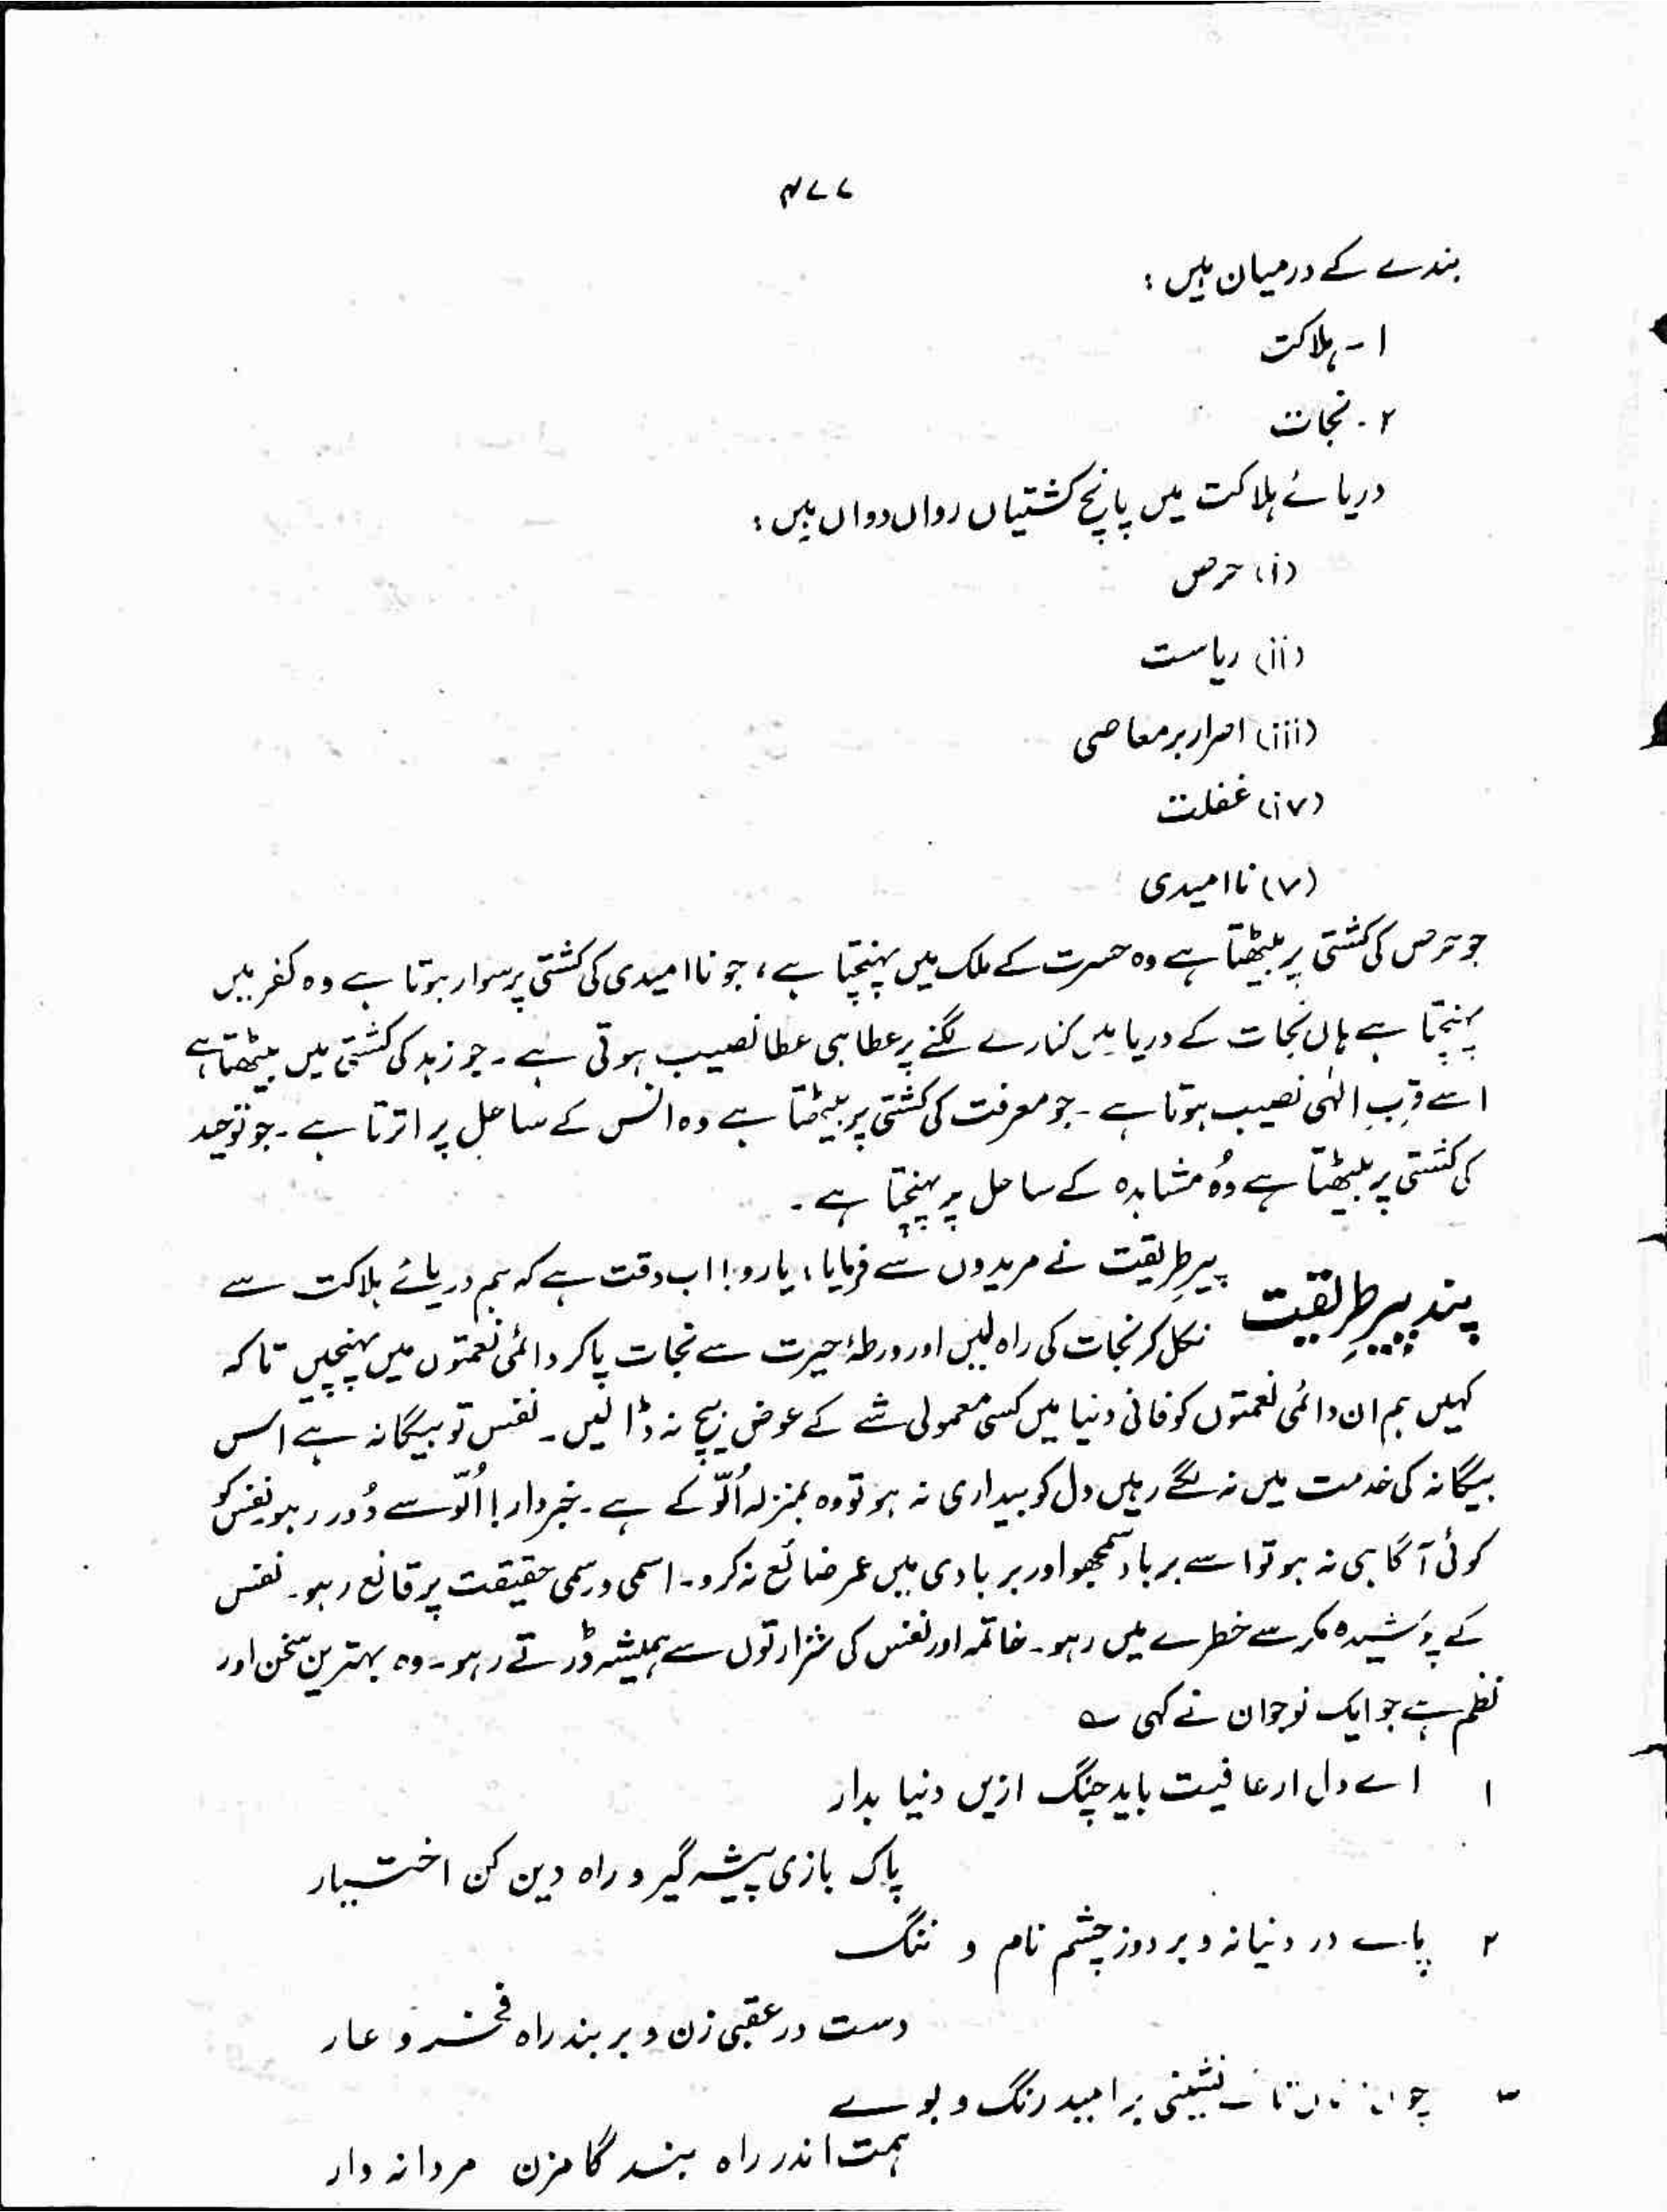 ۴۷۷
بندے کے درمیان ہیں :
۱- ہلاکت
۲- نجات
دریائے ہلاکت میں پانچ کشتیاں رواں دواں ہیں :
(i) حرص
(ii) ریاست
(iii) اصرار بر معاصی
(iv) غفلت
(v) ناامیدی
جو حرص کی کشتی پر بیٹھتا ہے وہ حسرت کے ملک میں پہنچتا ہے ، جو ناامیدی کی کشتی پر سوار ہوتا ہے وہ کفر میں
پہنچتا ہے ہاں نجات کے دریا میں کنارے لگنے پر عطا ہی عطا نصیب ہوتی ہے ۔ جو زہد کی کشتی میں بیٹھتا ہے
اسے قربِ الٰہی نصیب ہوتا ہے ۔ جو معرفت کی کشتی پر بیٹھتا ہے وہ انس کے ساحل پر اترتا ہے ۔ جو توحید
کی کشتی پر بیٹھتا ہے وُہ مشاہدہ کے ساحل پر پہنچتا ہے ۔
پندِ پیرِ طریقت پیرِ طریقت نے مریدوں سے فرمایا ، یارو! اب وقت ہے کہ ہم دریائے ہلاکت سے
نکل کر نجات کی راہ لیں اور ورطۂ حیرت سے نجات پا کر دائمی نعمتوں میں پہنچیں تاکہ
کہیں ہم ان دائمی نعمتوں کو فانی دنیا میں کسی معمولی شے کے عوض بیچ نہ ڈالیں ۔ نفس تو بیگانہ ہے اس
بیگانہ کی خدمت میں نہ لگے رہیں دل کو بیداری نہ ہو تو وہ بمنزلہ اُلّو کے ہے ۔ خبردار! اُلّو سے دُور رہو نفس کو
کوئی آگاہی نہ ہو تو اسے برباد سمجھو اور بربادی میں عمر ضائع نہ کرو ۔ اسمی و رسمی حقیقت پر قانع رہو ۔ نفس
کے پوشیدہ مکر سے خطرے میں رہو ۔ خاتمہ اور نفس کی شرارتوں سے ہمیشہ ڈرتے رہو ۔ وہ بہترین سخن اور
نظم ہے جو ایک نوجوان نے کہی ؎
۱ اے دل ار عافیت باید چنگ ازیں دنیا بدار
پاک بازی پیشہ گیر و راہ دین کن اختیار
۲ پاے در دنیا نہ و بر دوز چشم نام و ننگ
دست در عقبی زن و بر بند راہ فخر و عار
۳ نشینی بر امید رنگ و بوے
ہمت اندر راہ بند گامزن مردانہ وار